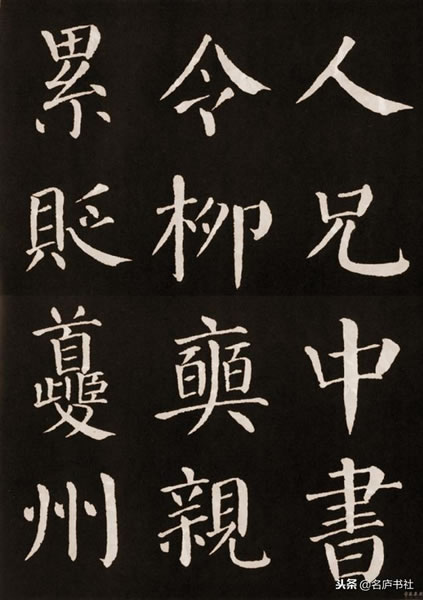 人兄中書
令柳奭親
累貶夔州
头条 @名庐书社